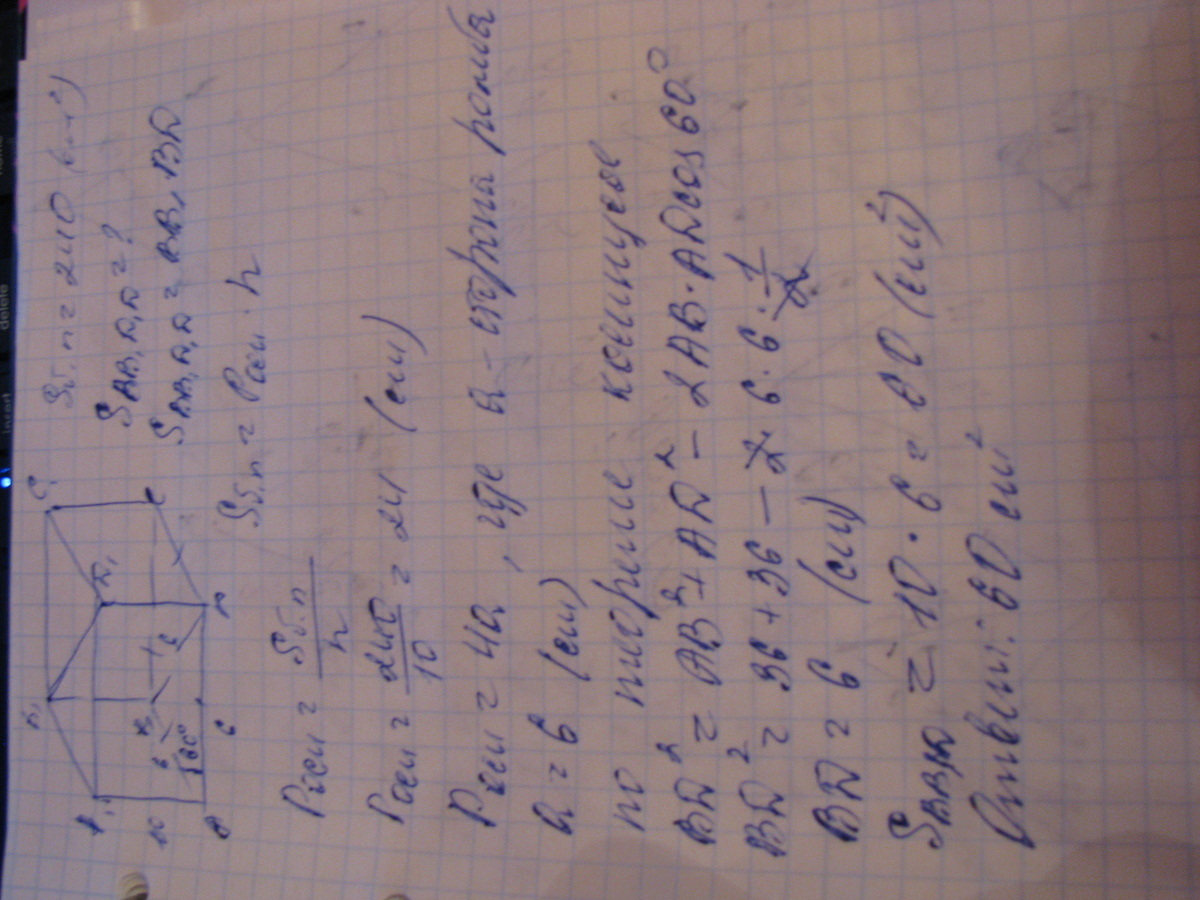 Sб.п = 240 (см²)
SBB₁D₁D = ?
SBB₁D₁D = BB₁ · BD
Sб.п = Pосн · h
A₁
B₁
C₁
D₁
10
6
60°
A
B
C
D
6
Pосн = Sб.п / h
Pосн = 240 / 10 = 24 (см)
Pосн = 4a , где a - сторона ромба
a = 6 (см)
по теореме косинусов
BD² = AB² + AD² - 2AB · AD cos 60°
BD² = 36 + 36 - 2 · 6 · 6 · 1/2
BD = 6 (см)
SBB₁D₁D = 10 · 6 = 60 (см²)
Ответ: 60 см²
delete